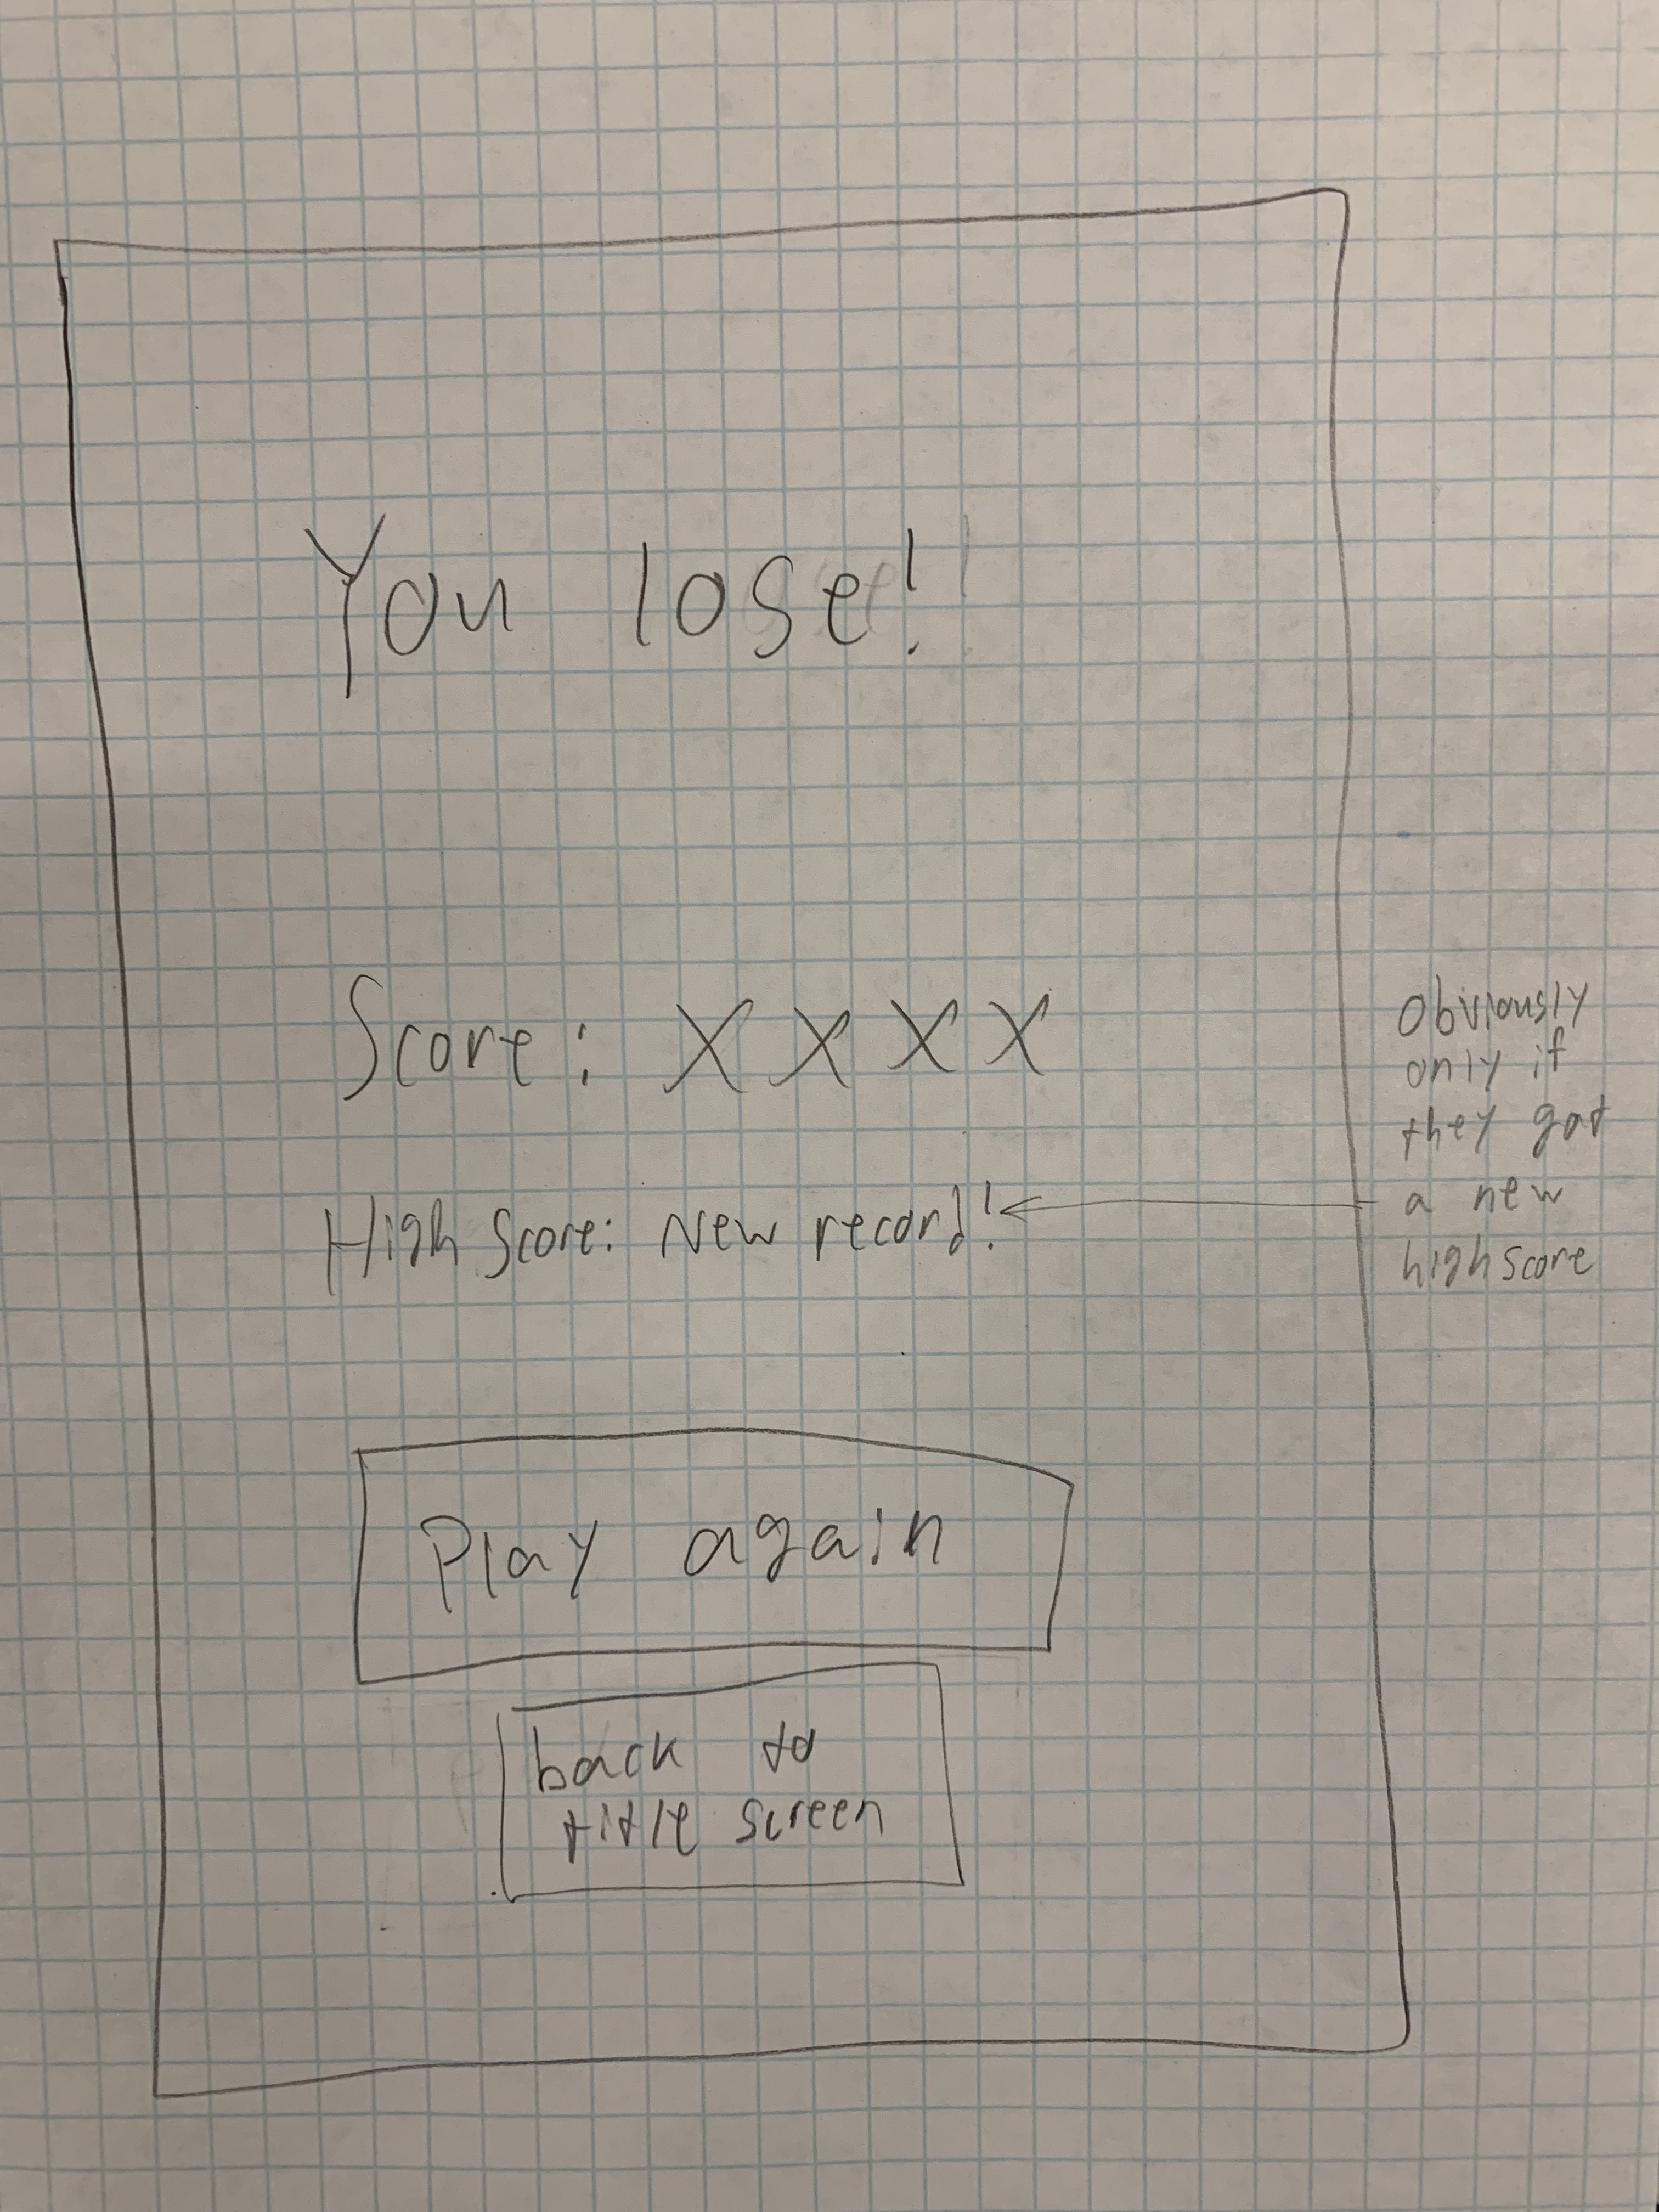 You lose!
Score: X X X X
High Score: New record!
Obviously
only if
they got
a new
highscore
Play again
back to
title screen